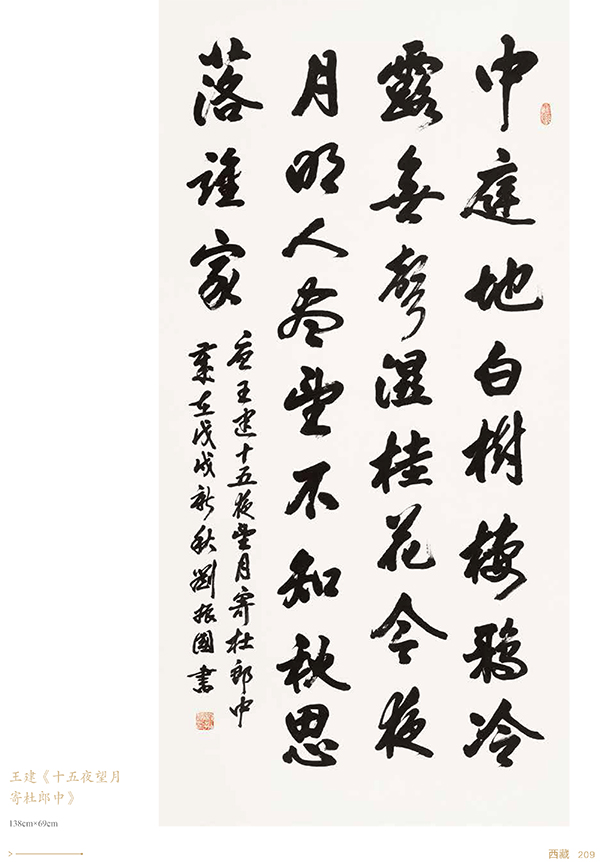 中庭地白樹棲鴉冷
露無聲濕桂花今夜
月明人盡望不知秋思
落誰家
唐王建十五夜望月寄杜郎中
歲在戊戌新秋劉振國書
王建《十五夜望月
寄杜郎中》
138cm×69cm
西藏 209